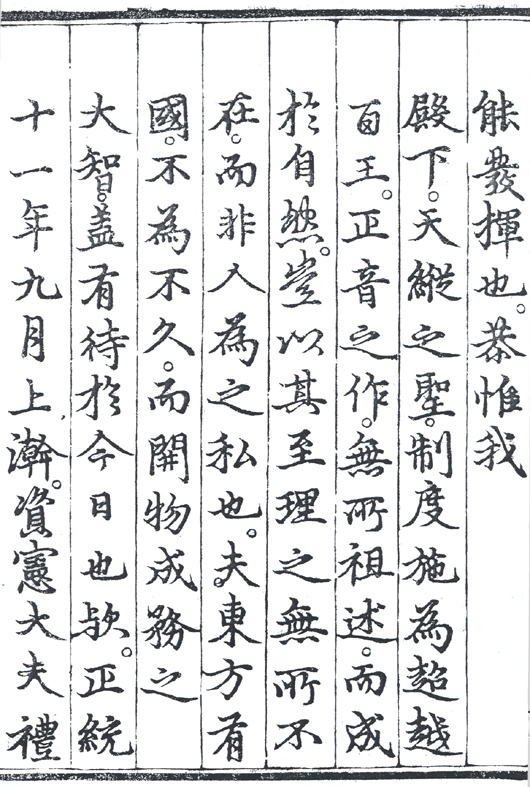 能發揮也。恭惟我
殿下。天縱之聖。制度施為超越
百王。正音之作。無所祖述。而成
於自然。豈以其至理之無所不
在。而非人為之私也。夫東方有
國。不為不久。而開物成務之
大智。盖有待於今日也欤。正統
十一年九月上澣。資憲大夫禮